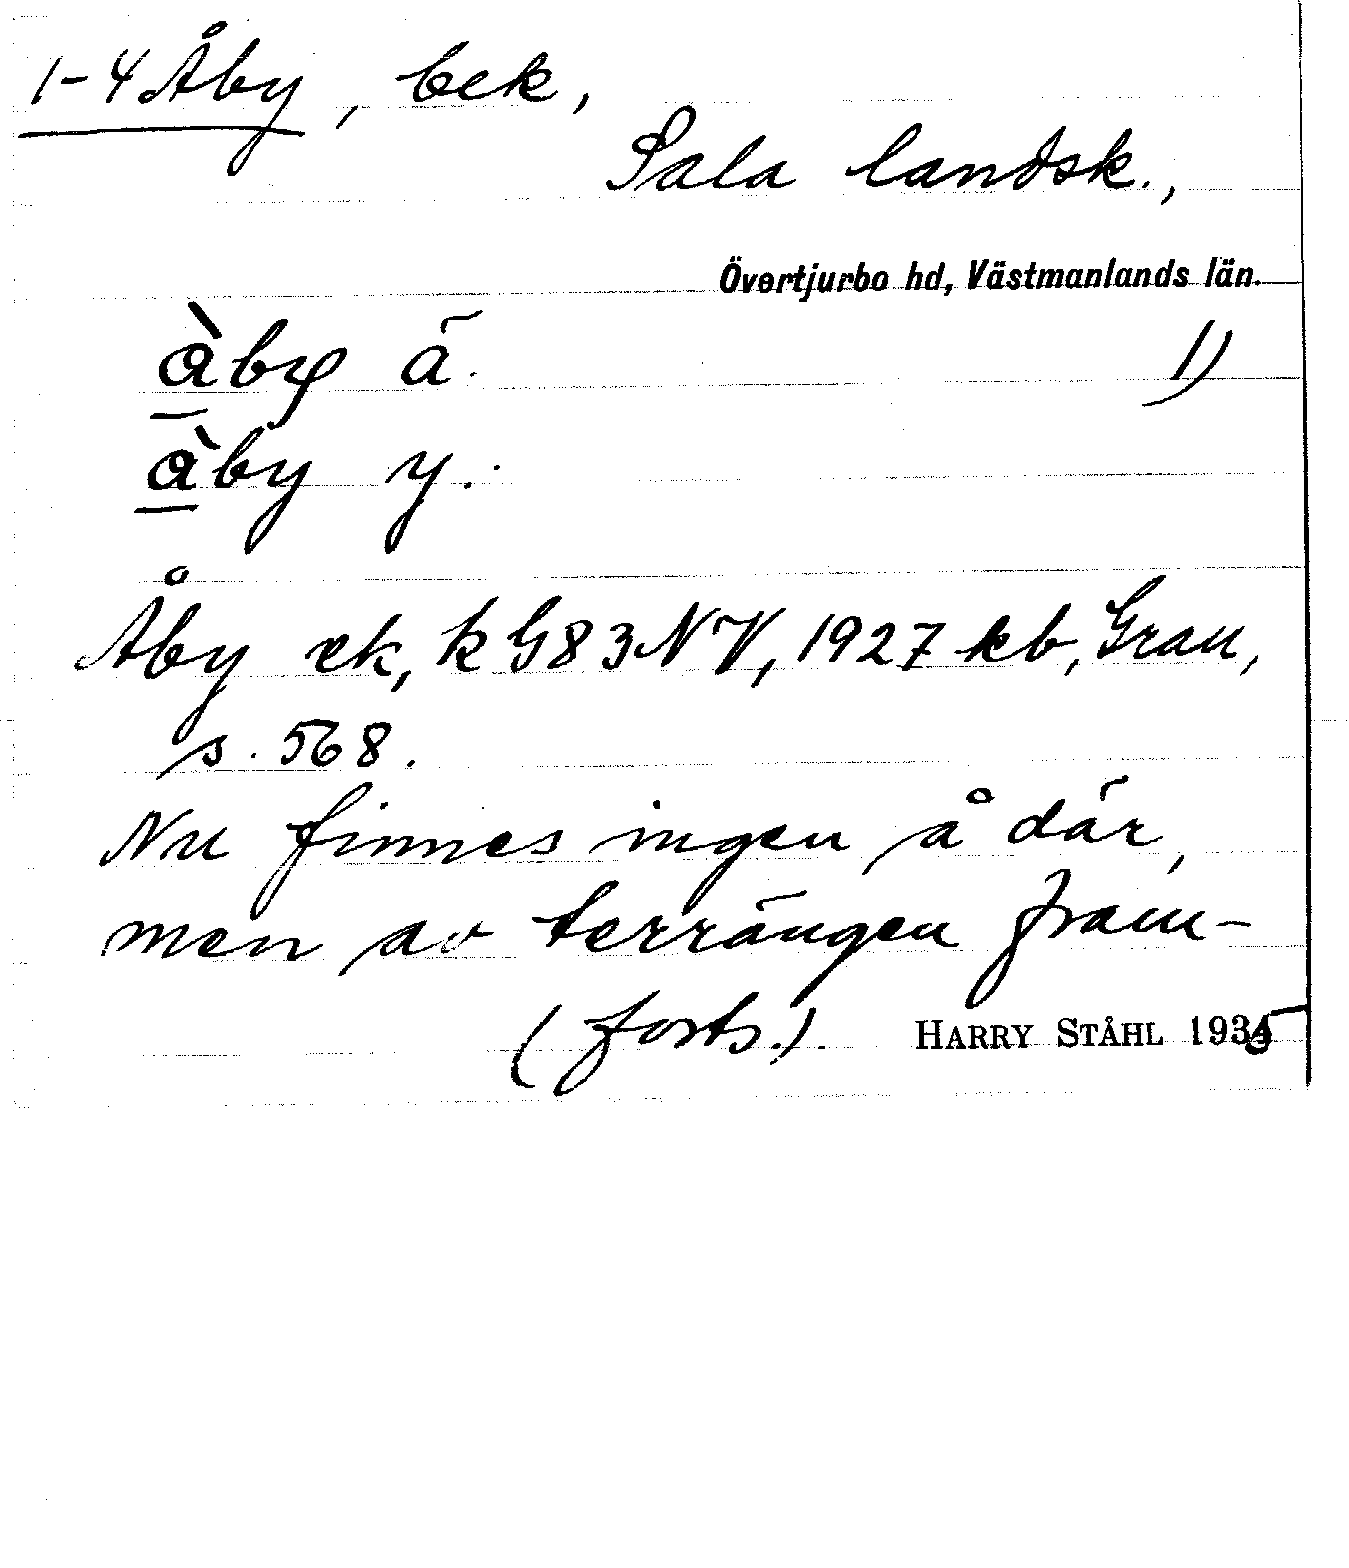 1-4 Åby, bek,
Sala landsk.,
Övertjurbo hd, Västmanlands län.
àby ä. 1)
àby y.
Åby ek, k G83NV, 1927 kb, Grau,
s. 568.
Nu finnes ingen å där,
men av terrängen fram-
(forts.). HARRY STÅHL 1935